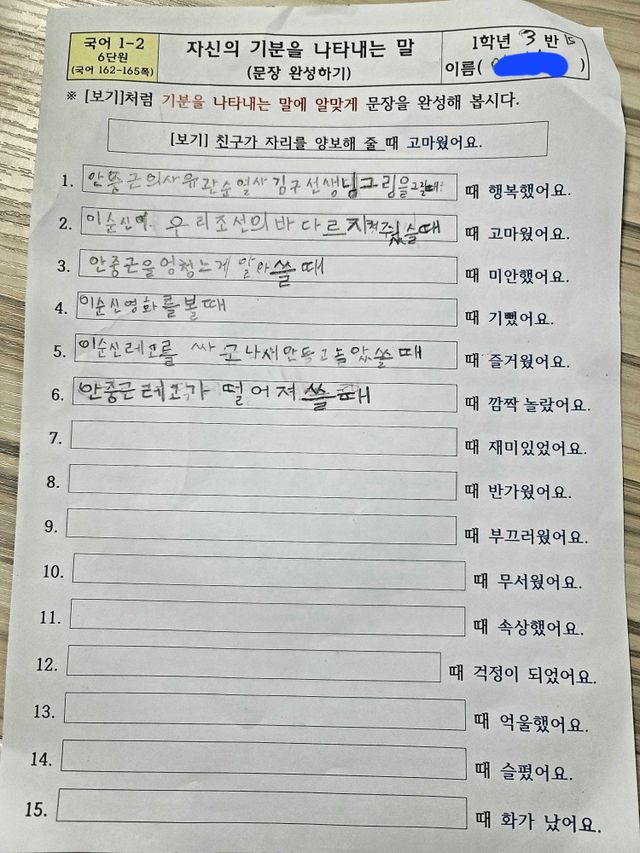 국어 1-2
6단원
(국어 162-165쪽)
자신의 기분을 나타내는 말
(문장 완성하기)
1학년 3 반 15
이름( )
※ [보기]처럼 기분을 나타내는 말에 알맞게 문장을 완성해 봅시다.
[보기] 친구가 자리를 양보해 줄 때 고마웠어요.
1. 안중근의사유관순열사김구선생님그림을그릴때 때 행복했어요.
2. 이순신이 우리조선의바다르지켜줬슬때 때 고마웠어요.
3. 안중근을엉청느게 쓸때 때 미안했어요.
4. 이순신영화를볼때 때 기뻤어요.
5. 이순신레고를 싸고나서만들고놀았쓸때 때 즐거웠어요.
6. 안중근레고가 떨어져쓸때 때 깜짝 놀랐어요.
7. 때 재미있었어요.
8. 때 반가웠어요.
9. 때 부끄러웠어요.
10. 때 무서웠어요.
11. 때 속상했어요.
12. 때 걱정이 되었어요.
13. 때 억울했어요.
14. 때 슬펐어요.
15. 때 화가 났어요.